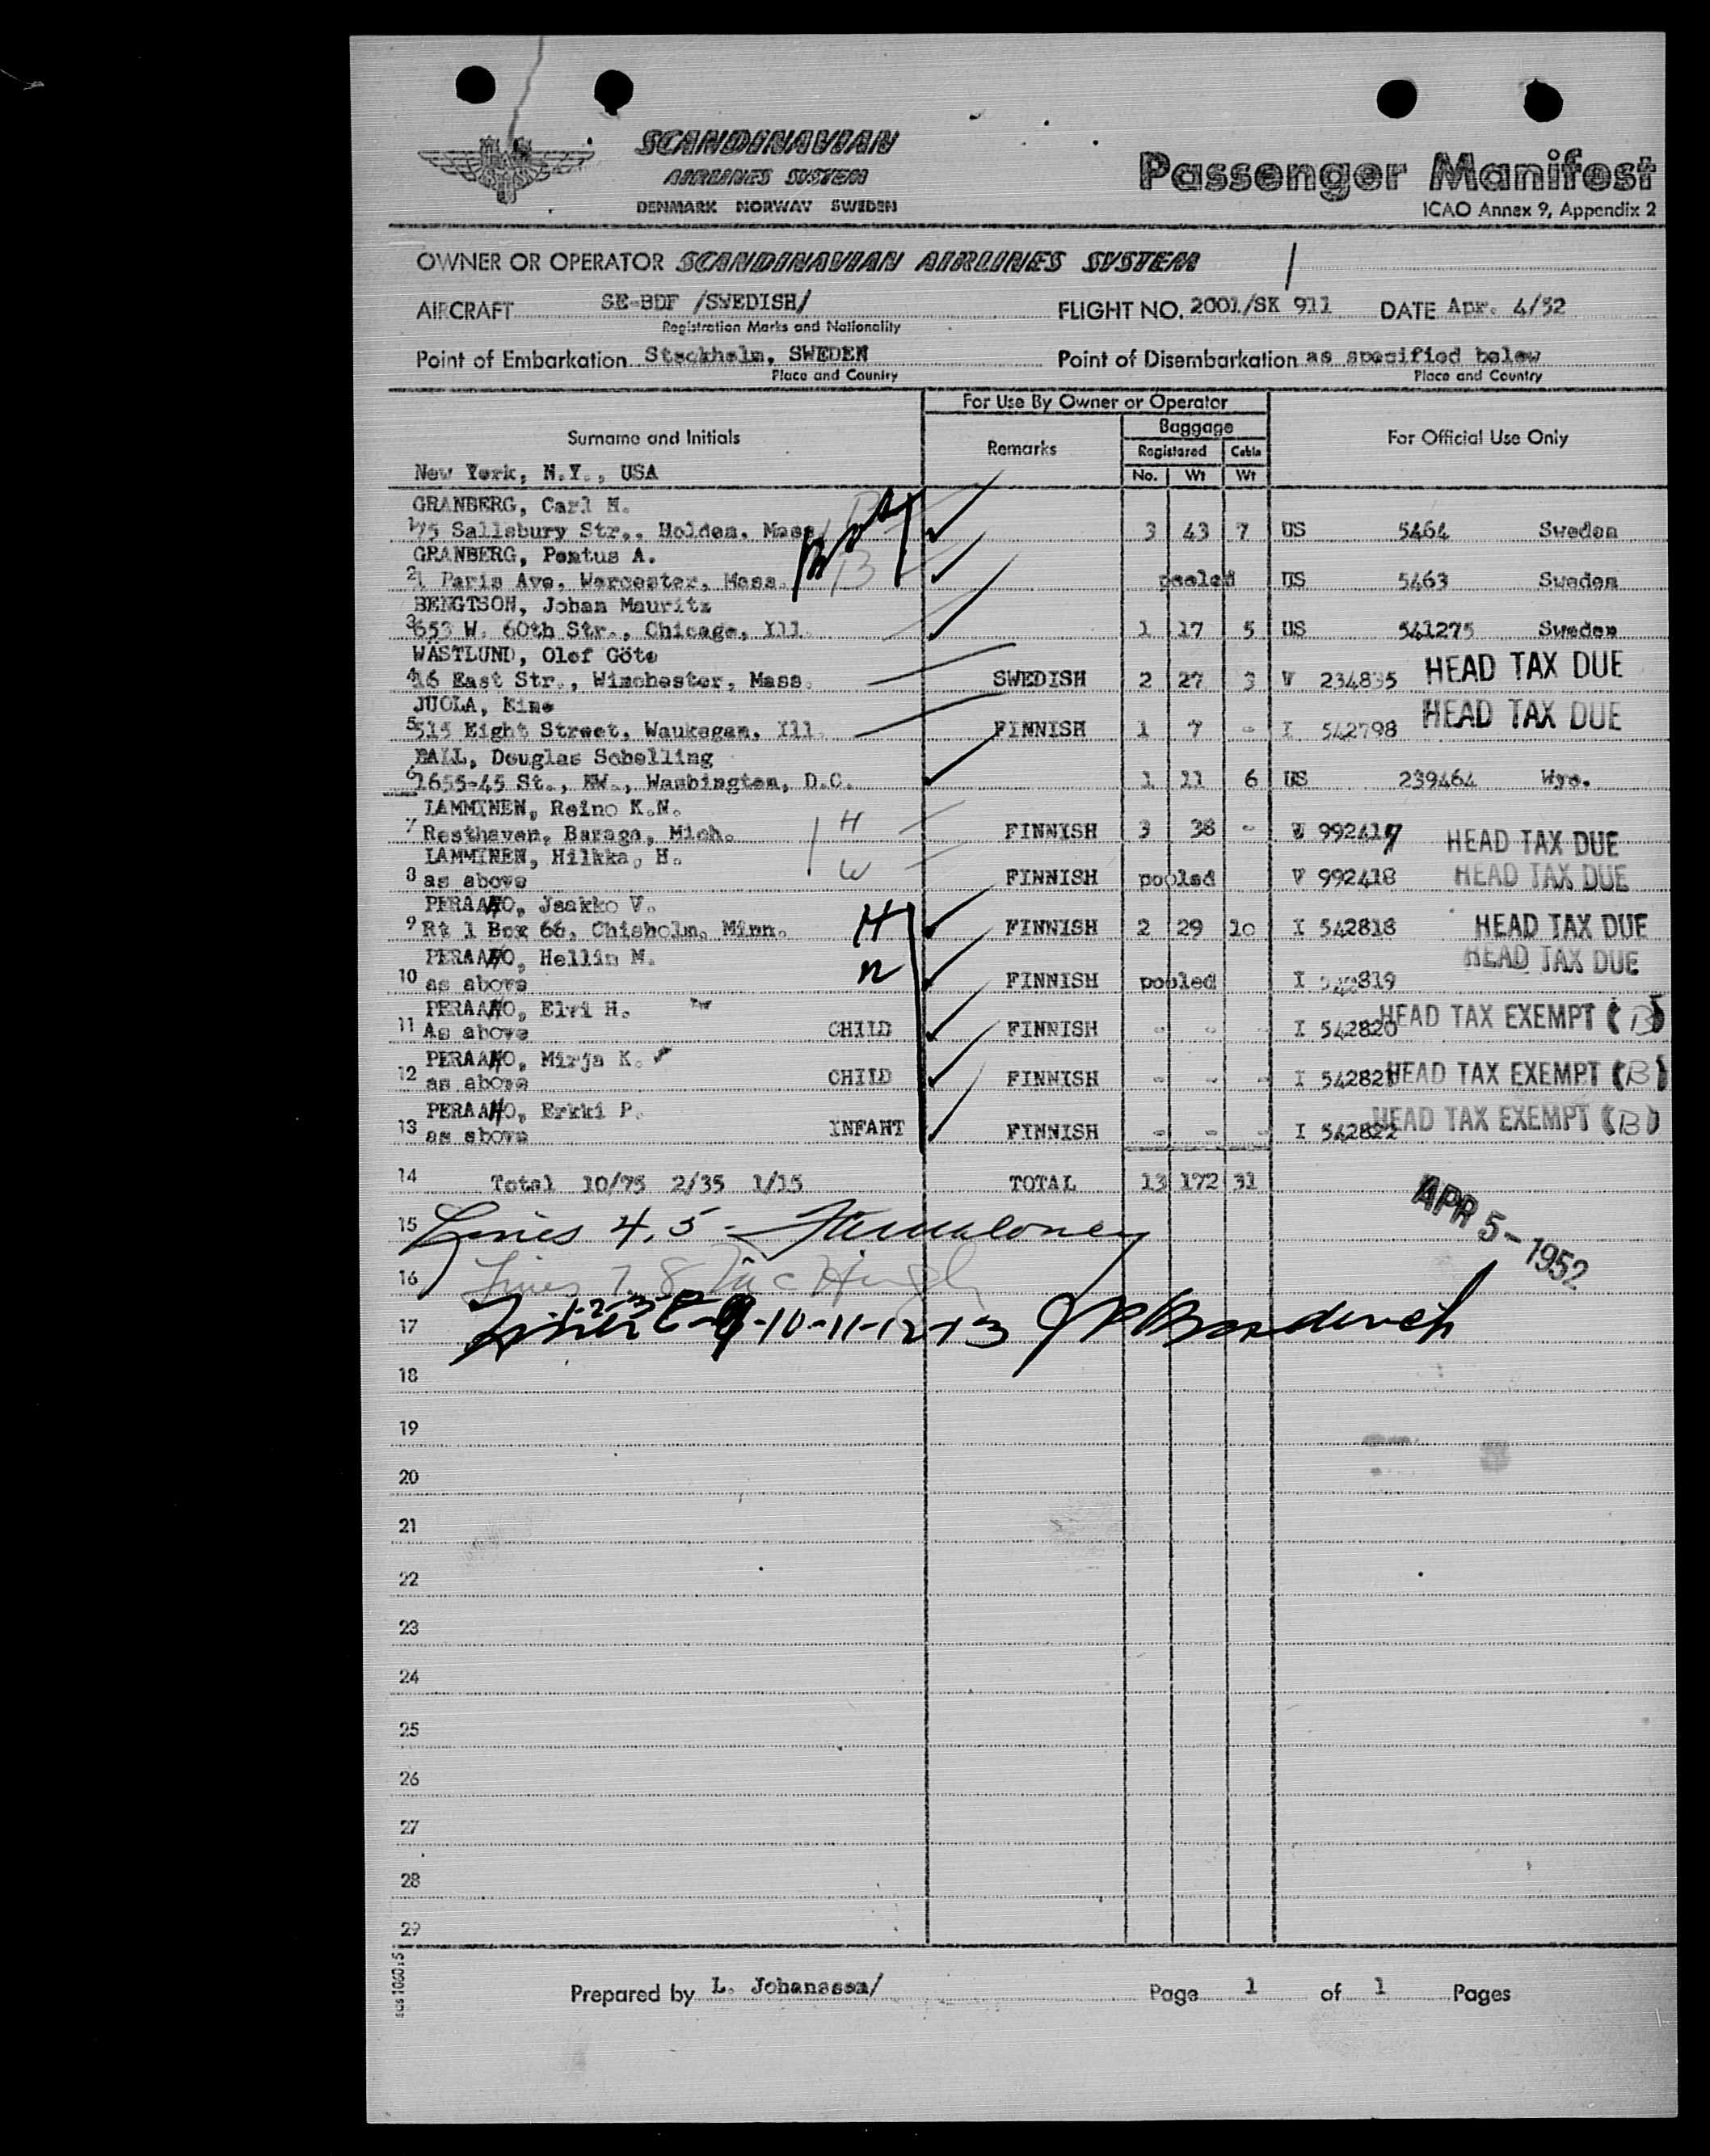 SCANDINAVIAN
AIRLINES SYSTEM
DENMARK NORWAY SWEDEN
Passenger Manifest
ICAO Annex 9, Appendix 2
OWNER OR OPERATOR SCANDINAVIAN AIRLINES SYSTEM
AIRCRAFT SE-BDF /SWEDISH/ FLIGHT NO. 2001/SK 911 DATE Apr. 4/52
Registration Marks and Nationality
Point of Embarkation Stockholm, SWEDEN Point of Disembarkation as specified below
Place and Country Place and Country
For Use By Owner or Operator
Surname and Initials Remarks Baggage For Official Use Only
Registered Cabin
No. Wt Wt
New York, N.Y., USA
GRANBERG, Carl H.
1 75 Salisbury Str., Holden, Mass. 3 43 7 US 5464 Sweden
GRANBERG, Pontus A. B
2 1 Paris Ave, Worcester, Mass. pooled US 5463 Sweden
BENGTSON, Johan Mauritz
3 653 W. 60th Str., Chicago, Ill. 1 17 5 US 541275 Sweden
WÄSTLUND, Olof Göte
4 16 East Str., Winchester, Mass. SWEDISH 2 27 3 V 234835 HEAD TAX DUE
JUOLA, Eino
5 515 Eight Street, Waukegan, Ill. FINNISH 1 7 - I 542798 HEAD TAX DUE
BALL, Douglas Schelling
6 1655-45 St., NW., Washington, D.C. 1 11 6 US 239464 Wyo.
LAMMINEN, Reino K.N.
7 Resthaven, Baraga, Mich. H FINNISH 3 38 - V 992417 HEAD TAX DUE
LAMMINEN, Hilkka, H.
8 as above W FINNISH pooled V 992418 HEAD TAX DUE
PERAAHO, Jaakko V.
9 Rt 1 Box 66, Chisholm, Minn. H FINNISH 2 29 10 I 542818 HEAD TAX DUE
PERAAHO, Hellin M.
10 as above FINNISH pooled I 542819 HEAD TAX DUE
PERAAHO, Elvi H.
11 As above CHILD FINNISH - - - I 542820 HEAD TAX EXEMPT (B)
PERAAHO, Mirja K.
12 as above CHILD FINNISH - - - I 542821 HEAD TAX EXEMPT (B)
PERAAHO, Erkki P.
13 as above INFANT FINNISH - - - I 542822 HEAD TAX EXEMPT (B)
14 Total 10/75 2/35 1/15 TOTAL 13 172 31
APR 5-1952
15 Lines 4,5 -
16 Lines 7, 8
17 -1-2-3- 9-10-11-12-13
18
19
20
21
22
23
24
25
26
27
28
29
sas 1060:5
Prepared by L. Johansson/ Page 1 of 1 Pages